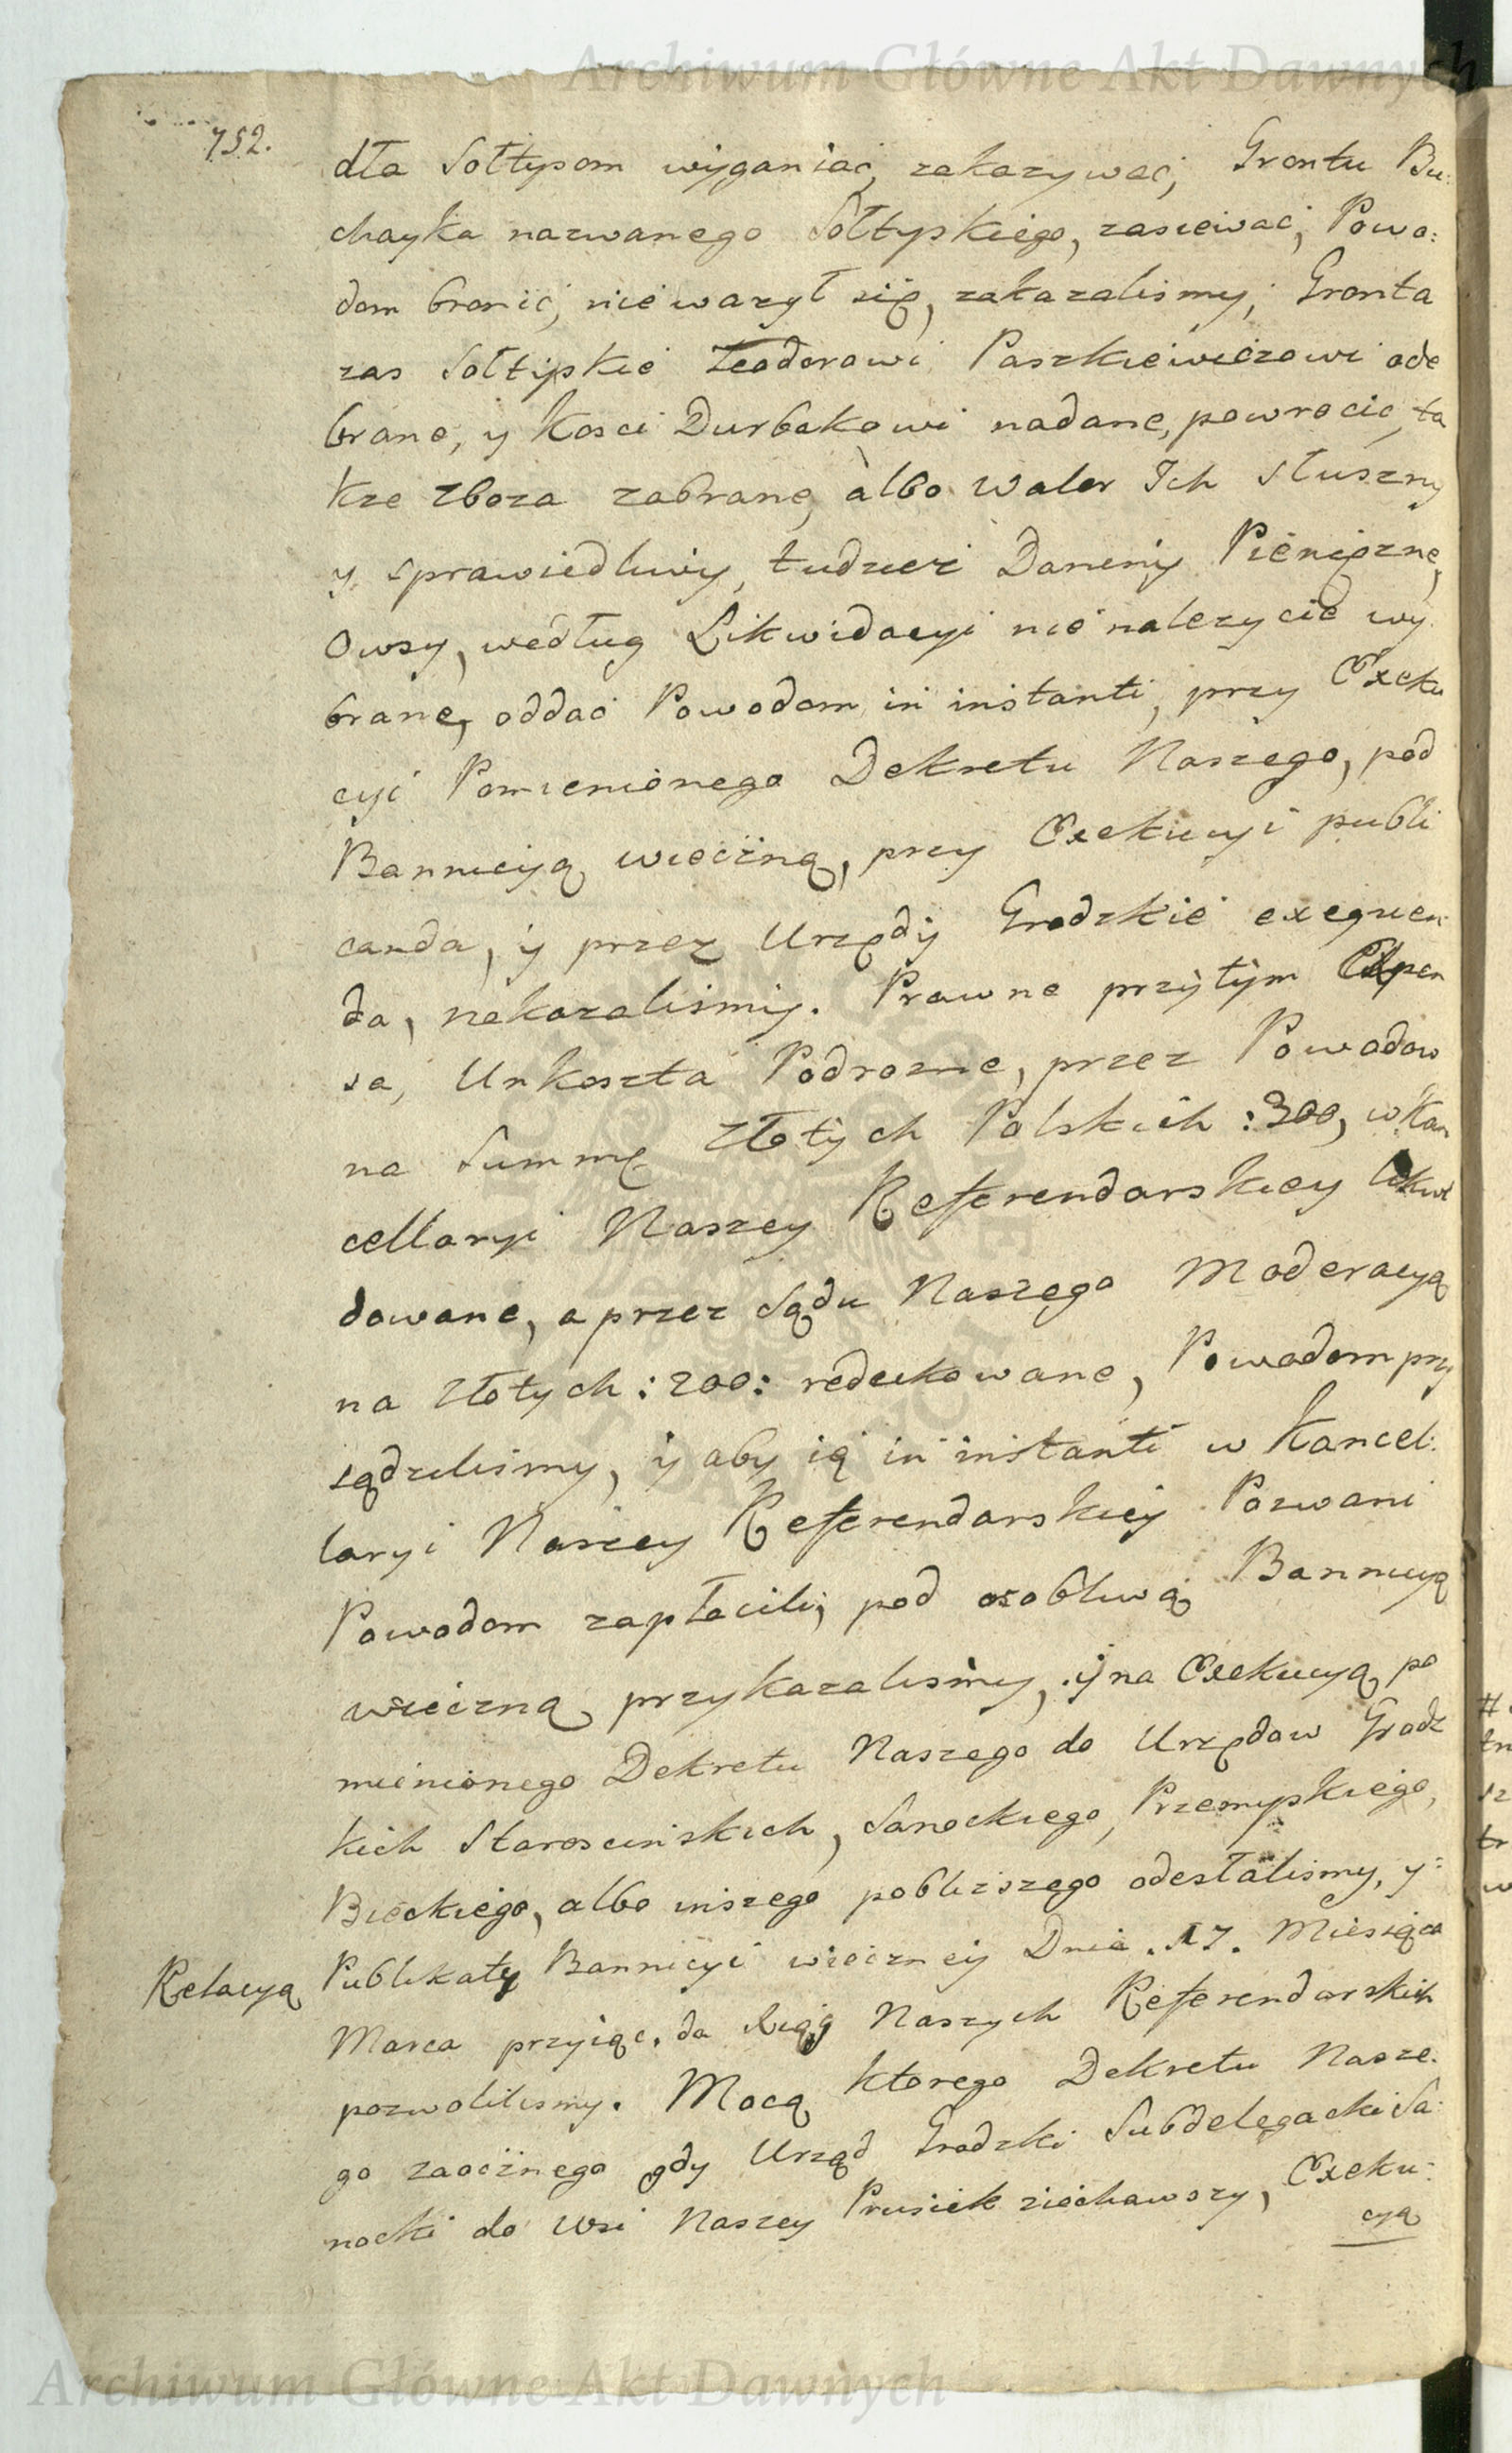 Archiwum Główne Akt Dawnych
752.
dła Sołtysom wyganiać, zakazywać, Gruntu Bu:
chayka nazwanego Sołtyskiego, zasiewać, Powo:
dom bronić, nie ważył się, zakazaliśmy; Gronta
zas Sołtyskie Teodorowi Paszkiewiczowi ode
brane, y Kosci Durbakowi nadane, powrocić, ta
kze zboza zabrane, albo walor Ich słuszny
y sprawiedliwy, tudzież Daniny Pieniężne,
Owsy, według Likwidacyi nie nalezycie wy
brane, oddać Powodom in instanti, przy Exeku
cyi Pomienionego Dekretu Naszego, pod
Bannicyą wieczną, przy Exekucyi publi
canda, y przez Urzędy Grodzkie exequen
da, nakazaliśmy. Prawne przytym Expen
sa, Unkoszta Podrozne, przez Powodow
na Summę Złotych Polskich :300, w Kan
cellaryi Naszey Referendarskiey likwi
dowane, a przez Sądu Naszego Moderacyą
na Złotych :200: redukowane, Powodom przy
sądzilismy, y aby ią in instanti w Kancel:
laryi Naszey Referendarskiey Pozwani
Powodom zapłacili, pod osobliwą Bannicyą
wieczną przykazalismy, y na Exekucyą po
mienionego Dekretu Naszego do Urzędow Grodz
kich Starościńskich, Sanockiego, Przemyskiego,
Bieckiego, albo inszego pobliższego odesłalismy, y
Relacyą
Publikaty Bannicyi wieczney Dnia .17. Miesiąca
Marca przyiąć, do Xiąg Naszych Referendarskich
pozwolilismy. Mocą ktorego Dekretu Nasze:
go zaocznego gdy Urząd Grodzki Subdelegacki Sa:
nocki do Wsi Naszey Prusiek ziechawszy, Exeku:
cyą
Archiwum Główne Akt Dawnych